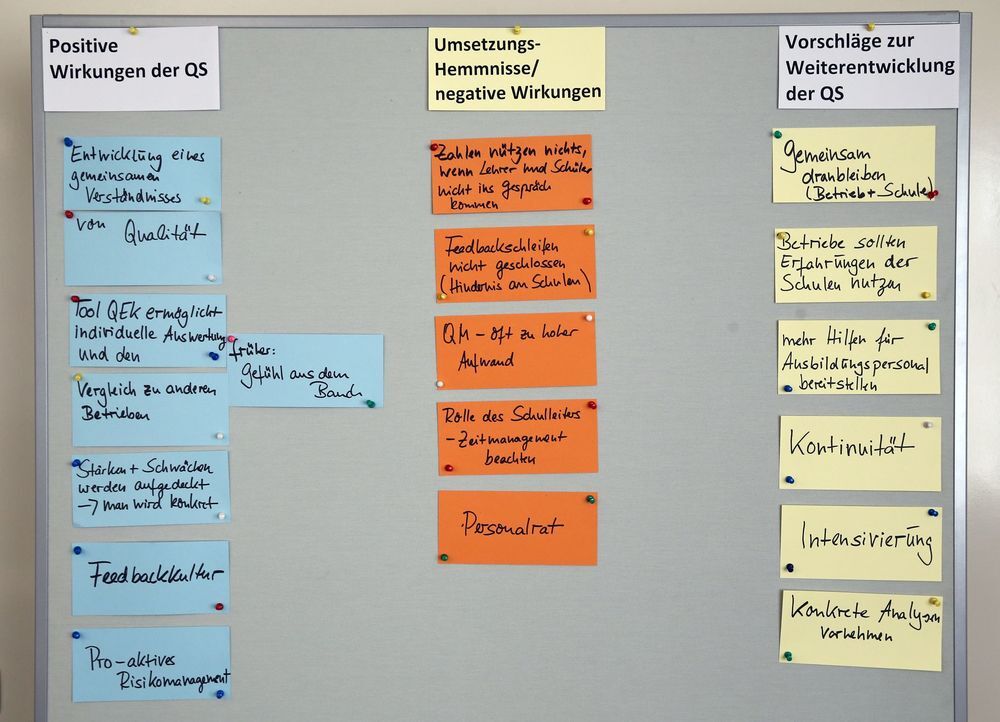 Positive
Wirkungen der QS
Entwicklung eines
gemeinsamen
Verständnisses
von Qualität
Tool QEK ermöglicht
individuelle Auswertung
und den
früher:
Gefühl aus dem
Bauch
Vergleich zu anderen
Betrieben
Stärken + Schwächen
werden aufgedeckt
→ man wird konkret
Feedbackkultur
Pro-aktives
Risikomanagement
Umsetzungs-
Hemmnisse/
negative Wirkungen
Zahlen nützen nichts,
wenn Lehrer und Schüler
nicht ins gespräch
kommen
Feedbackschleifen
nicht geschlossen
(Hindernis an Schulen)
QM - oft zu hoher
Aufwand
Rolle des Schulleiters
- Zeitmanagement
beachten
Personalrat
Vorschläge zur
Weiterentwicklung
der QS
gemeinsam
dranbleiben
(Betrieb + Schule)
Betriebe sollten
Erfahrungen der
Schulen nutzen
mehr Hilfen für
Ausbildungspersonal
bereitstellen
Kontinuität
Intensivierung
Konkrete Analysen
vornehmen